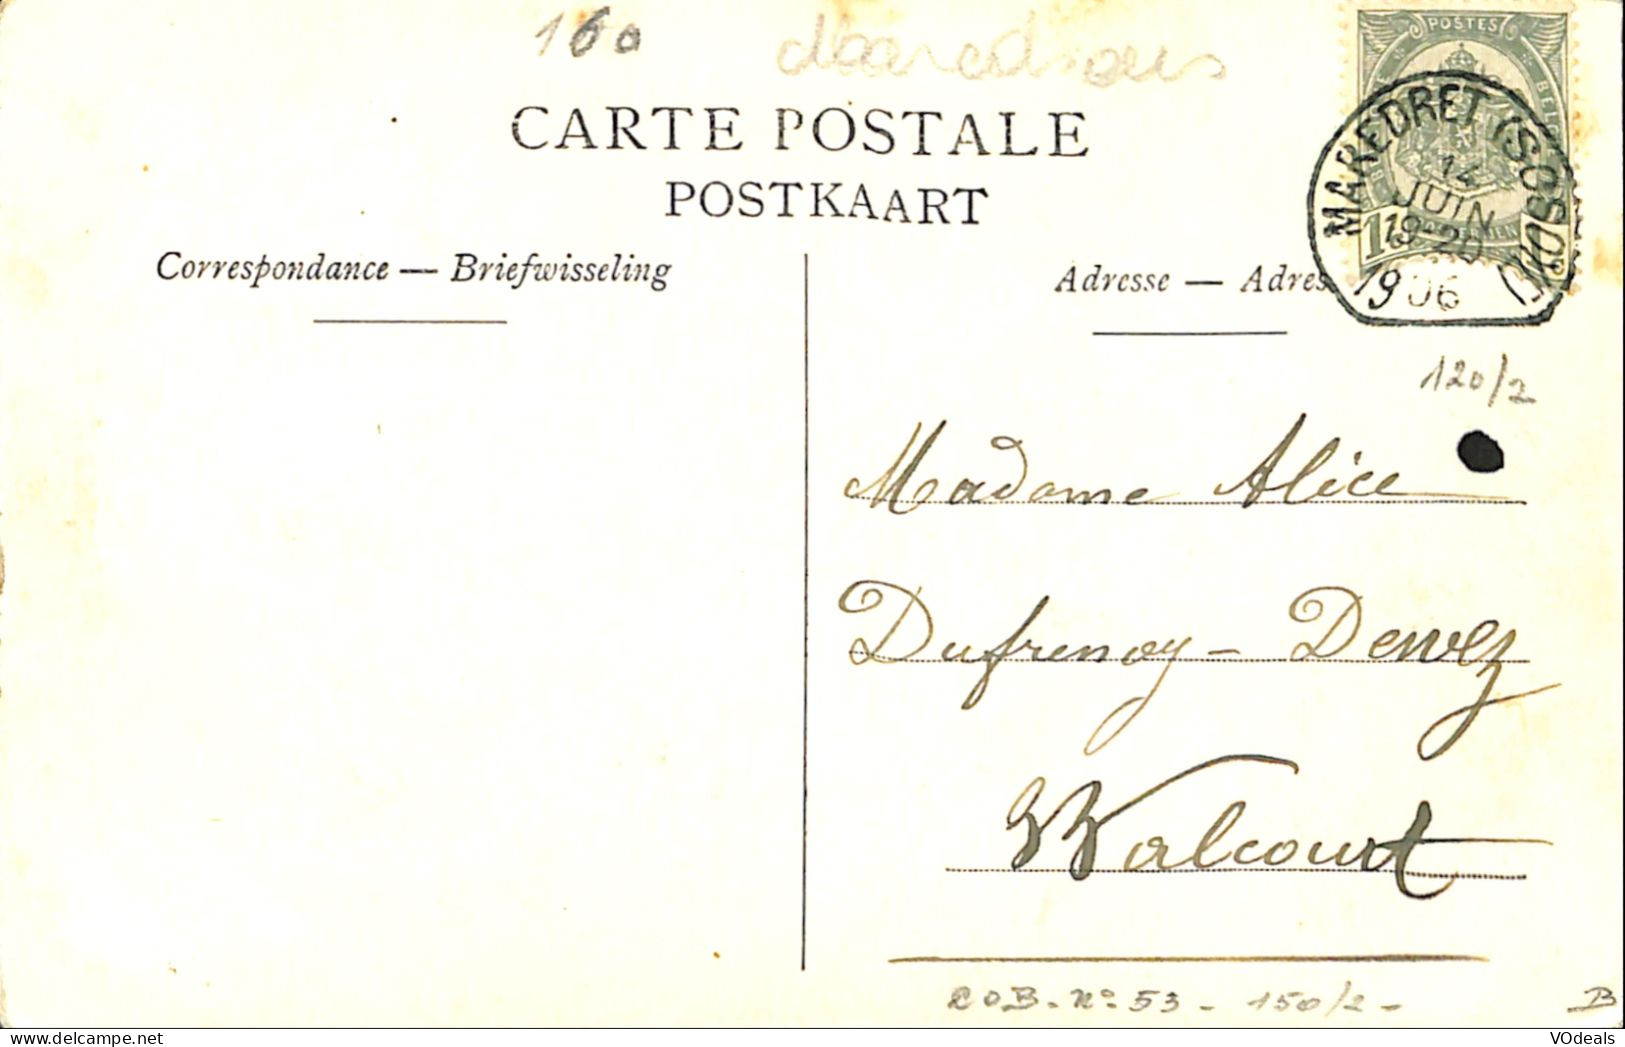 160
Maredsous
POSTES
CARTE POSTALE
POSTKAART
MAREDRET (SOSOYE)
14
JUIN
19-20
1906
Correspondance — Briefwisseling
Adresse — Adres
120/2
Madame Alice
Dufrenoy - Dewez
Walcourt
COB - No 53 - 150/2 -
B
VOdeals